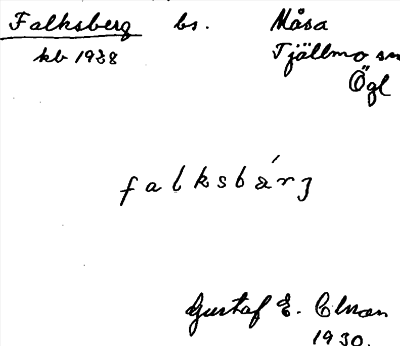 Falksberg bs. Måsa
kb 1938 Tjällmo sn
Ögl
falksbärj
Gustaf E.
1930.